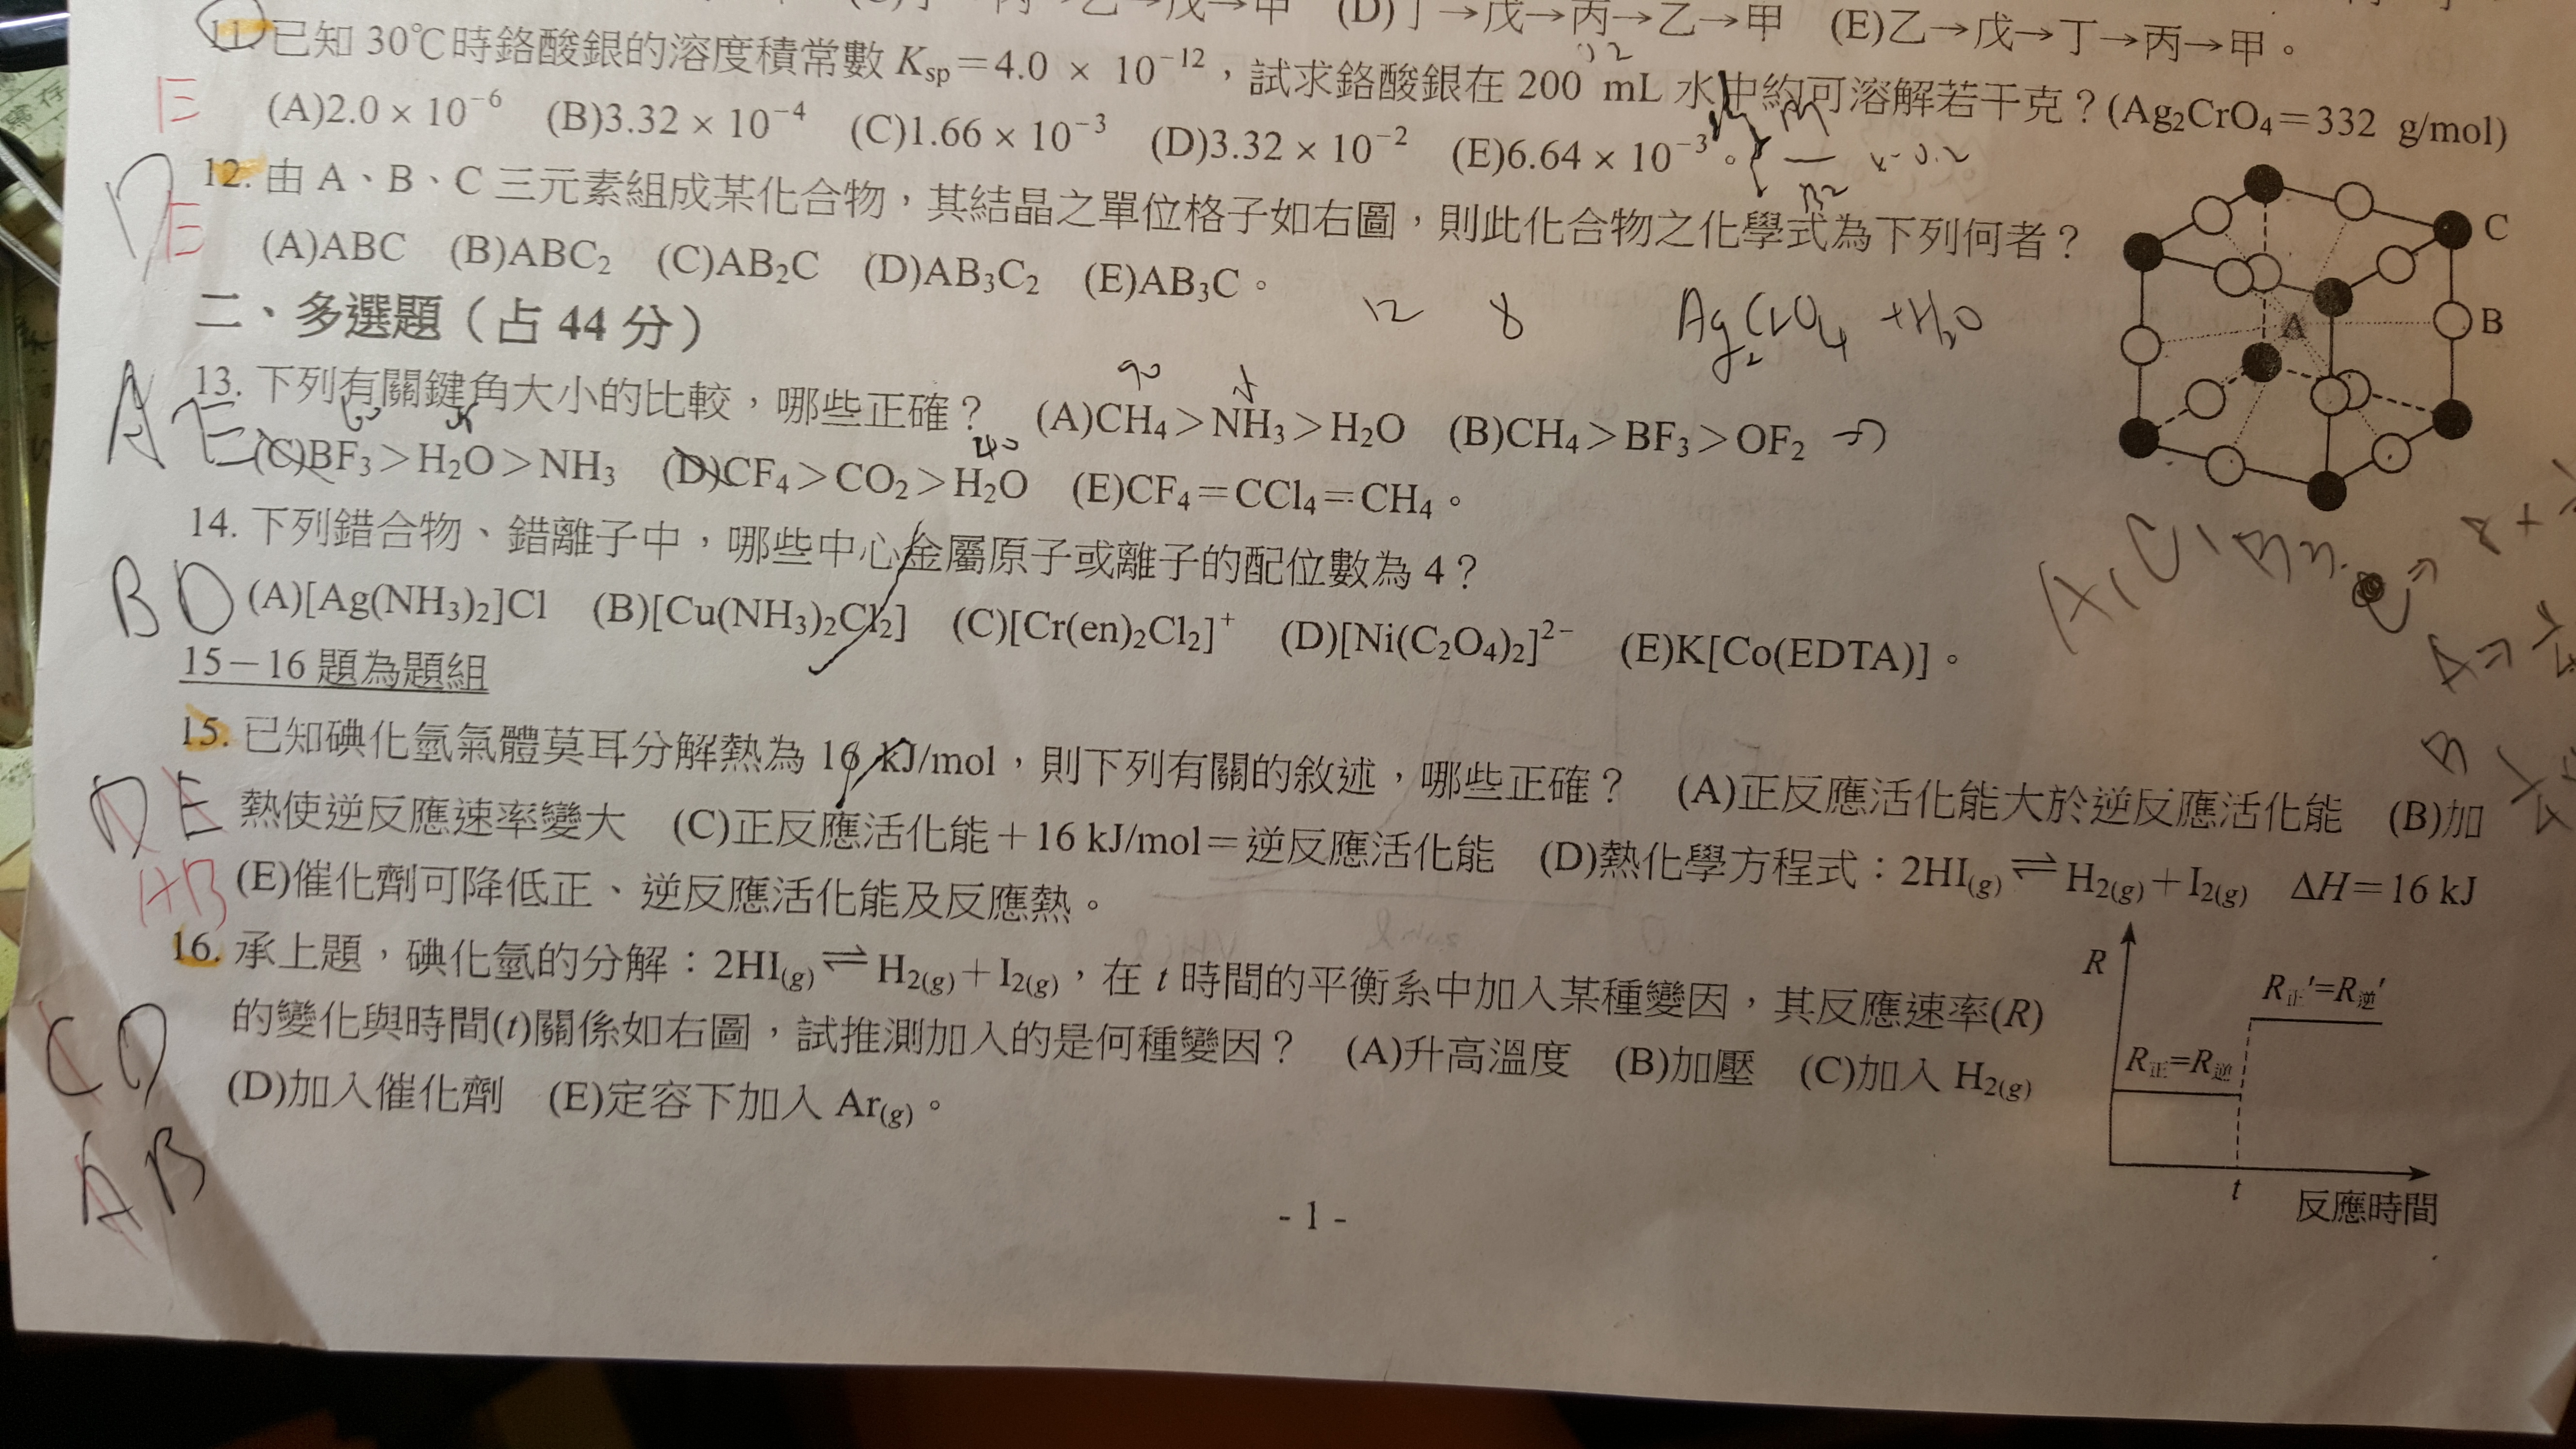 (D)丁→戊→丙→乙→甲 (E)乙→戊→丁→丙→甲。
11. 已知 30℃時鉻酸銀的溶度積常數 Ksp＝4.0 × 10⁻¹²，試求鉻酸銀在 200 mL 水中約可溶解若干克？(Ag₂CrO₄＝332 g/mol)
(A)2.0 × 10⁻⁶ (B)3.32 × 10⁻⁴ (C)1.66 × 10⁻³ (D)3.32 × 10⁻² (E)6.64 × 10⁻³。
E
12. 由 A、B、C 三元素組成某化合物，其結晶之單位格子如右圖，則此化合物之化學式為下列何者？
(A)ABC (B)ABC₂ (C)AB₂C (D)AB₃C₂ (E)AB₃C。
D
E
C
B
A
12 8 Ag₂CrO₄ + H₂O
二、多選題（占 44 分）
13. 下列有關鍵角大小的比較，哪些正確？ (A)CH₄＞NH₃＞H₂O (B)CH₄＞BF₃＞OF₂
(C)BF₃＞H₂O＞NH₃ (D)CF₄＞CO₂＞H₂O (E)CF₄＝CCl₄＝CH₄。
A E
14. 下列錯合物、錯離子中，哪些中心金屬原子或離子的配位數為 4？
(A)[Ag(NH₃)₂]Cl (B)[Cu(NH₃)₂Cl₂] (C)[Cr(en)₂Cl₂]⁺ (D)[Ni(C₂O₄)₂]²⁻ (E)K[Co(EDTA)]。
B D
15－16 題為題組
15. 已知碘化氫氣體莫耳分解熱為 16 kJ/mol，則下列有關的敘述，哪些正確？ (A)正反應活化能大於逆反應活化能 (B)加
熱使逆反應速率變大 (C)正反應活化能＋16 kJ/mol＝逆反應活化能 (D)熱化學方程式：2HI(g)⇌H₂(g)＋I₂(g) ΔH＝16 kJ
(E)催化劑可降低正、逆反應活化能及反應熱。
D E
AB
16. 承上題，碘化氫的分解：2HI(g)⇌H₂(g)＋I₂(g)，在 t 時間的平衡系中加入某種變因，其反應速率(R)
的變化與時間(t)關係如右圖，試推測加入的是何種變因？ (A)升高溫度 (B)加壓 (C)加入 H₂(g)
(D)加入催化劑 (E)定容下加入 Ar(g)。
C D
A B
R
R正′=R逆′
R正=R逆
t
反應時間
- 1 -